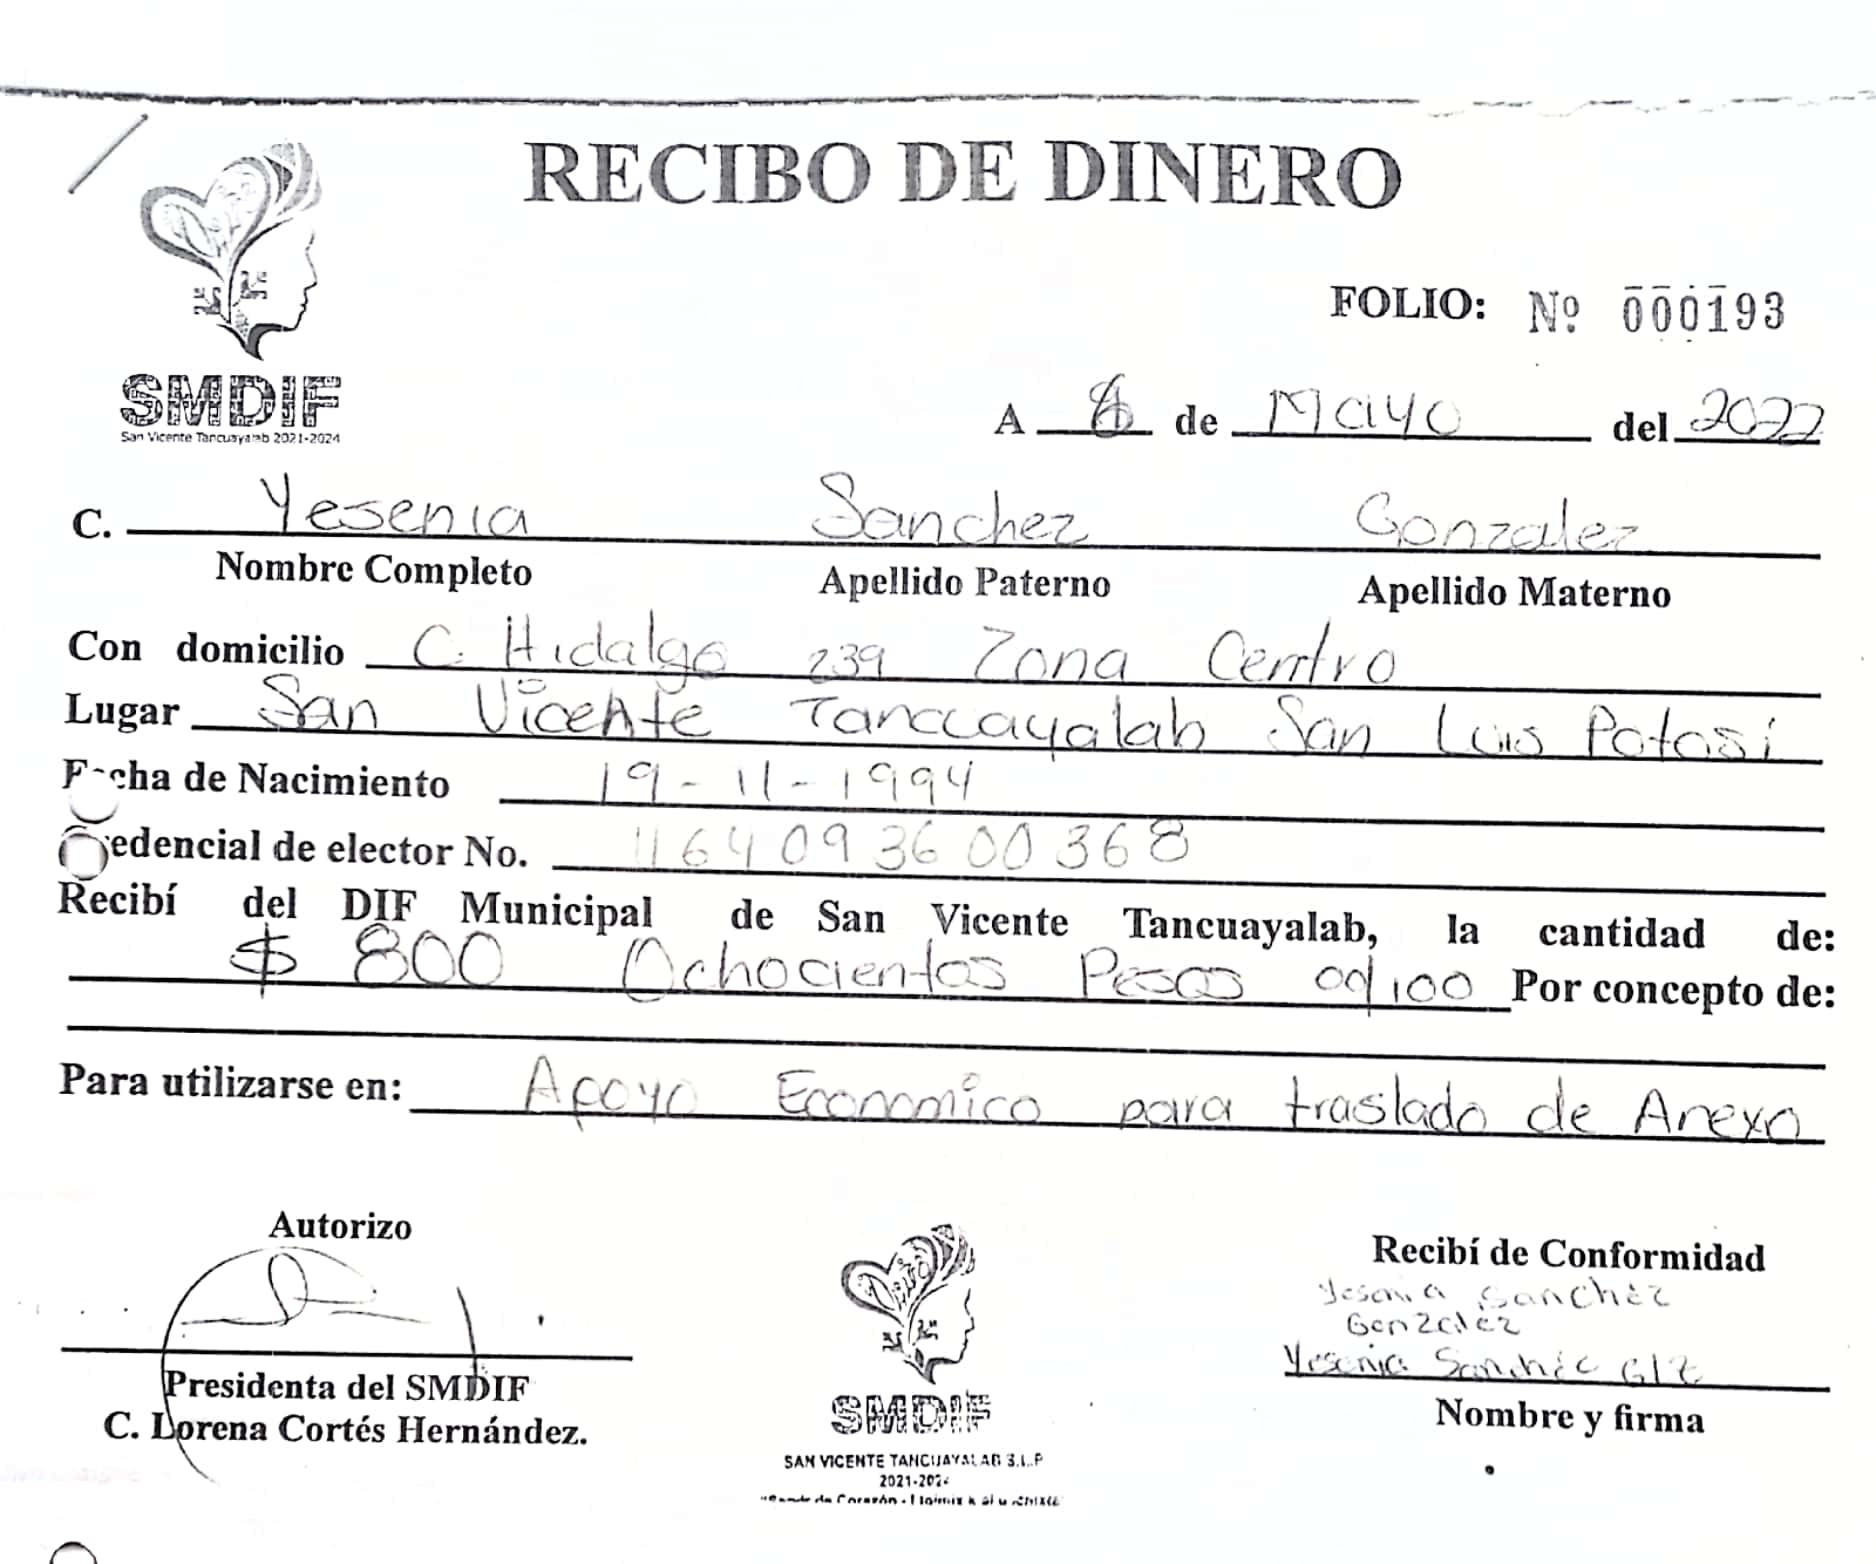 RECIBO DE DINERO
FOLIO: Nº 000193
SMDIF
San Vicente Tancuayalab 2021-2024
A de Mayo del 2022
C. Yesenia Sanchez Gonzalez
Nombre Completo Apellido Paterno Apellido Materno
Con domicilio C. Hidalgo 239 Zona Centro
Lugar San Vicente Tancuayalab San Luis Potosi
Fecha de Nacimiento 19-11-1994
Credencial de elector No. 1164093600368
Recibí del DIF Municipal de San Vicente Tancuayalab, la cantidad de:
$ 800 Ochocientos Pesos 00/100 Por concepto de:
Para utilizarse en: Apoyo Economico para traslado de Anexo
Autorizo
Recibí de Conformidad
Yesenia Sanchez
Gonzalez
Yesenia Sanchez Glz
Presidenta del SMDIF
C. Lorena Cortés Hernández.
Nombre y firma
SMDIF
SAN VICENTE TANCUAYALAB S.L.P
2021-2024